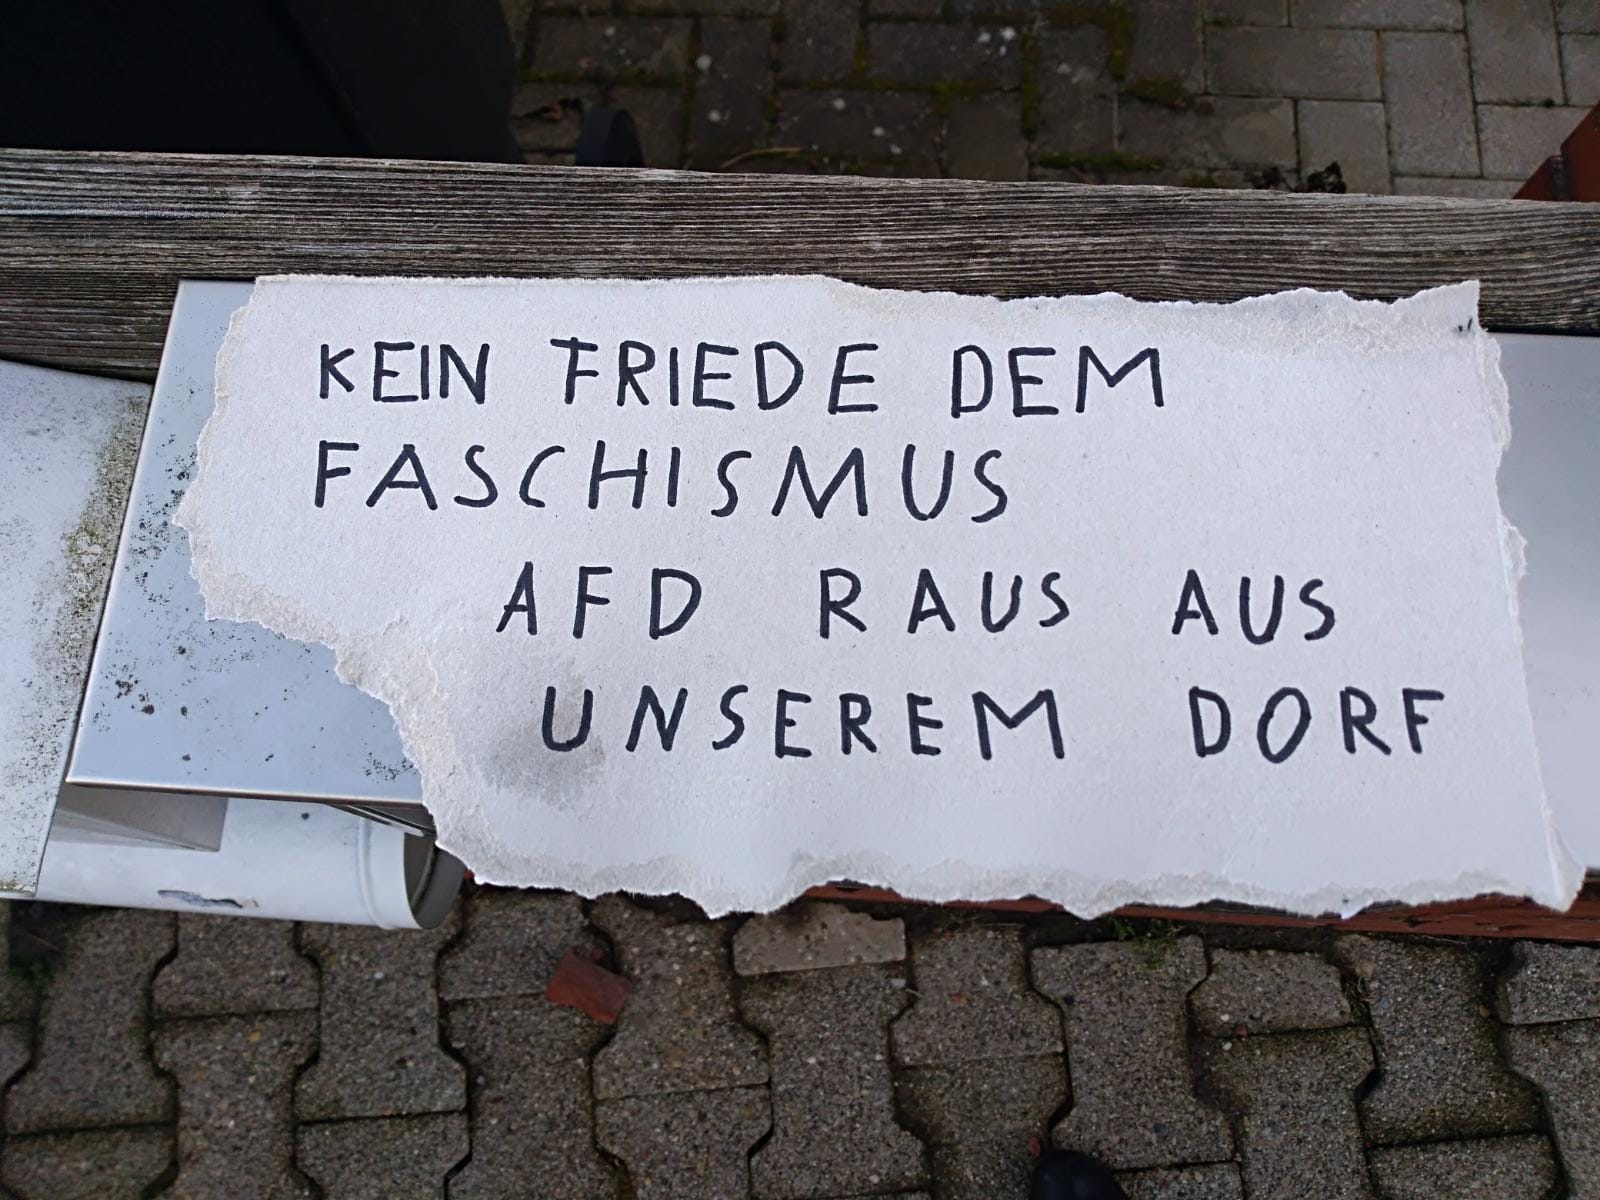 KEIN FRIEDE DEM
FASCHISMUS
AFD RAUS AUS
UNSEREM DORF